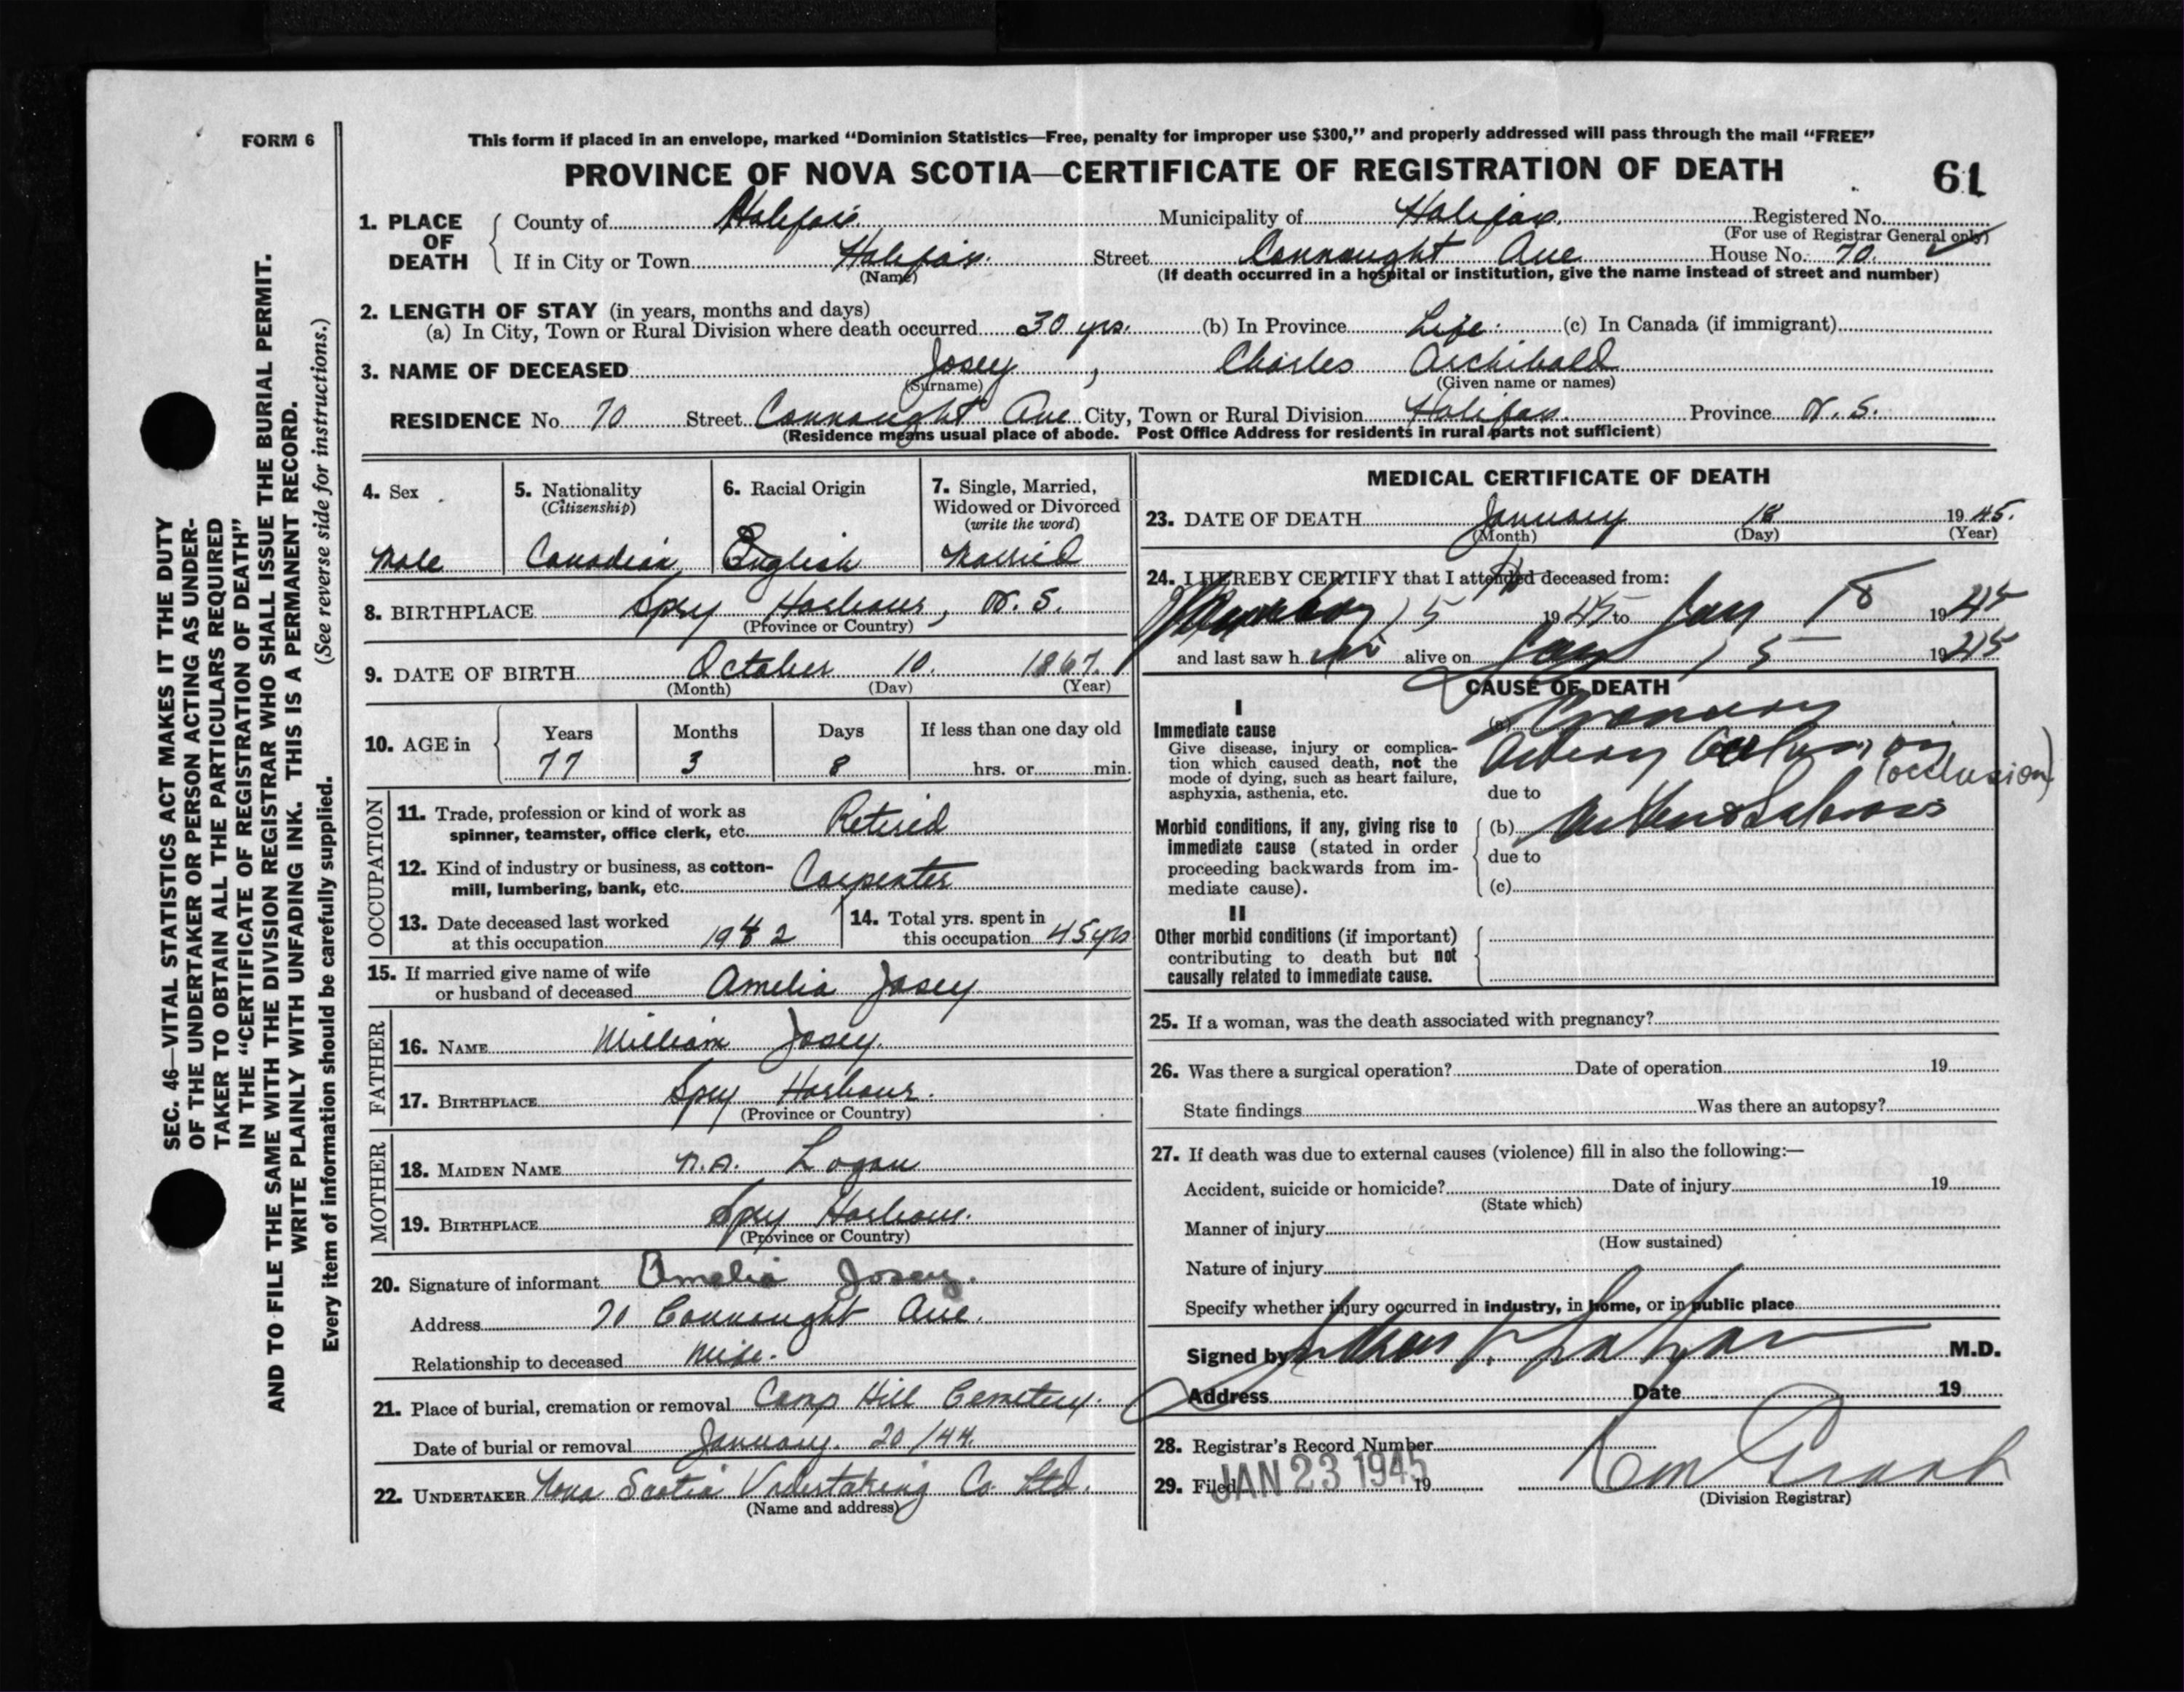 FORM 6
This form if placed in an envelope, marked “Dominion Statistics—Free, penalty for improper use $300,” and properly addressed will pass through the mail “FREE”
PROVINCE OF NOVA SCOTIA—CERTIFICATE OF REGISTRATION OF DEATH
61
SEC. 46—VITAL STATISTICS ACT MAKES IT THE DUTY
OF THE UNDERTAKER OR PERSON ACTING AS UNDER-
TAKER TO OBTAIN ALL THE PARTICULARS REQUIRED
IN THE “CERTIFICATE OF REGISTRATION OF DEATH”
AND TO FILE THE SAME WITH THE DIVISION REGISTRAR WHO SHALL ISSUE THE BURIAL PERMIT.
WRITE PLAINLY WITH UNFADING INK. THIS IS A PERMANENT RECORD.
Every item of information should be carefully supplied. (See reverse side for instructions.)
1. PLACE OF DEATH
County of Halifax Municipality of Halifax Registered No.
(For use of Registrar General only)
If in City or Town Halifax Street Connaught Ave House No. 70
(Name) (If death occurred in a hospital or institution, give the name instead of street and number)
2. LENGTH OF STAY (in years, months and days)
(a) In City, Town or Rural Division where death occurred 30 yrs. (b) In Province Life. (c) In Canada (if immigrant)
3. NAME OF DECEASED Josey, Charles Archibald
(Surname) (Given name or names)
RESIDENCE No. 70 Street Connaught Ave City, Town or Rural Division Halifax Province N. S.
(Residence means usual place of abode. Post Office Address for residents in rural parts not sufficient)
4. Sex
Male
5. Nationality
(Citizenship)
Canadian
6. Racial Origin
English
7. Single, Married,
Widowed or Divorced
(write the word)
Married
8. BIRTHPLACE Spry Harbour, N. S.
(Province or Country)
9. DATE OF BIRTH October 10. 1867.
(Month) (Day) (Year)
10. AGE in
Years Months Days If less than one day old
77 3 8 hrs. or min.
OCCUPATION
11. Trade, profession or kind of work as
spinner, teamster, office clerk, etc. Retired
12. Kind of industry or business, as cotton-
mill, lumbering, bank, etc. Carpenter
13. Date deceased last worked
at this occupation 1942
14. Total yrs. spent in
this occupation 45 yrs
15. If married give name of wife
or husband of deceased Amelia Josey
FATHER
16. NAME William Josey.
17. BIRTHPLACE Spry Harbour.
(Province or Country)
MOTHER
18. MAIDEN NAME n.a. Logan
19. BIRTHPLACE Spry Harbour.
(Province or Country)
20. Signature of informant Amelia Josey.
Address 70 Connaught Ave.
Relationship to deceased Wife.
21. Place of burial, cremation or removal Camp Hill Cemetery.
Date of burial or removal January. 20/44.
22. UNDERTAKER Nova Scotia Undertaking Co. Ltd.
(Name and address)
MEDICAL CERTIFICATE OF DEATH
23. DATE OF DEATH January 18 1945.
(Month) (Day) (Year)
24. I HEREBY CERTIFY that I attended deceased from:
15 1945 to Jan 18 1945
and last saw him alive on Jan 15 1945
CAUSE OF DEATH
I
Immediate cause
Give disease, injury or complica-
tion which caused death, not the
mode of dying, such as heart failure,
asphyxia, asthenia, etc.
(a) Coronary
Artery Occlusion
(occlusion)
due to
Morbid conditions, if any, giving rise to
immediate cause (stated in order
proceeding backwards from im-
mediate cause).
(b) Arteriosclerosis
due to
(c)
II
Other morbid conditions (if important)
contributing to death but not
causally related to immediate cause.
25. If a woman, was the death associated with pregnancy?
26. Was there a surgical operation? Date of operation 19
State findings Was there an autopsy?
27. If death was due to external causes (violence) fill in also the following:—
Accident, suicide or homicide? Date of injury 19
(State which)
Manner of injury
(How sustained)
Nature of injury
Specify whether injury occurred in industry, in home, or in public place
Signed by M.D.
Address Date 19
28. Registrar's Record Number
29. Filed JAN 23 1945 19
(Division Registrar)